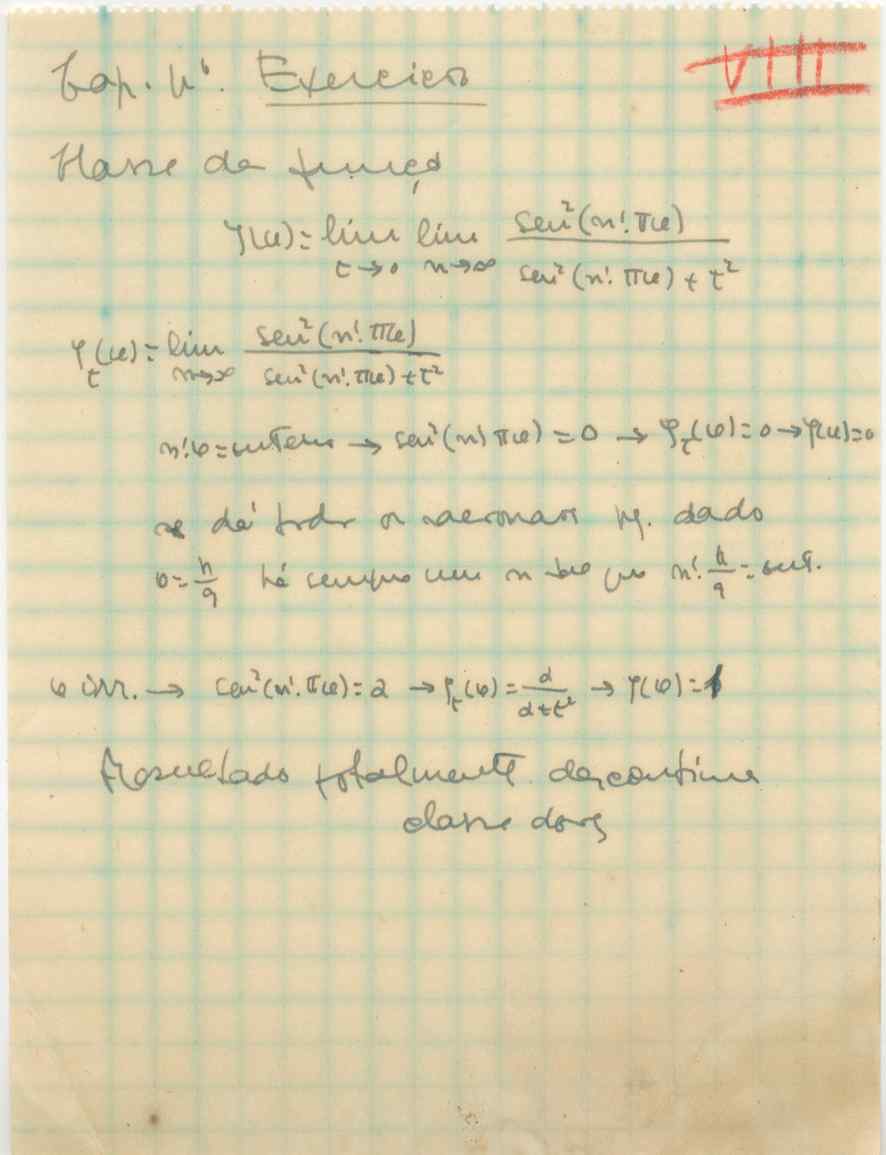 VIII
Cap. Exercicios
Classe da função
φ(x) = lim lim sen²(n!πx) / sen²(n!πx) + t²
t→0 n→∞
φ_t(x) = lim sen²(n!πx) / sen²(n!πx) + t²
n→∞
n!x = inteiro → sen²(n!πx) = 0 → φ_t(x) = 0 → φ(x) = 0
se dá todos os racionais pq. dado
x = p/q há sempre um n tal que n! p/q = int.
x irr. → sen²(n!πx) = α → φ_t(x) = α/α+t² → φ(x) = 1
Resultado totalmente descontinua
classe dois